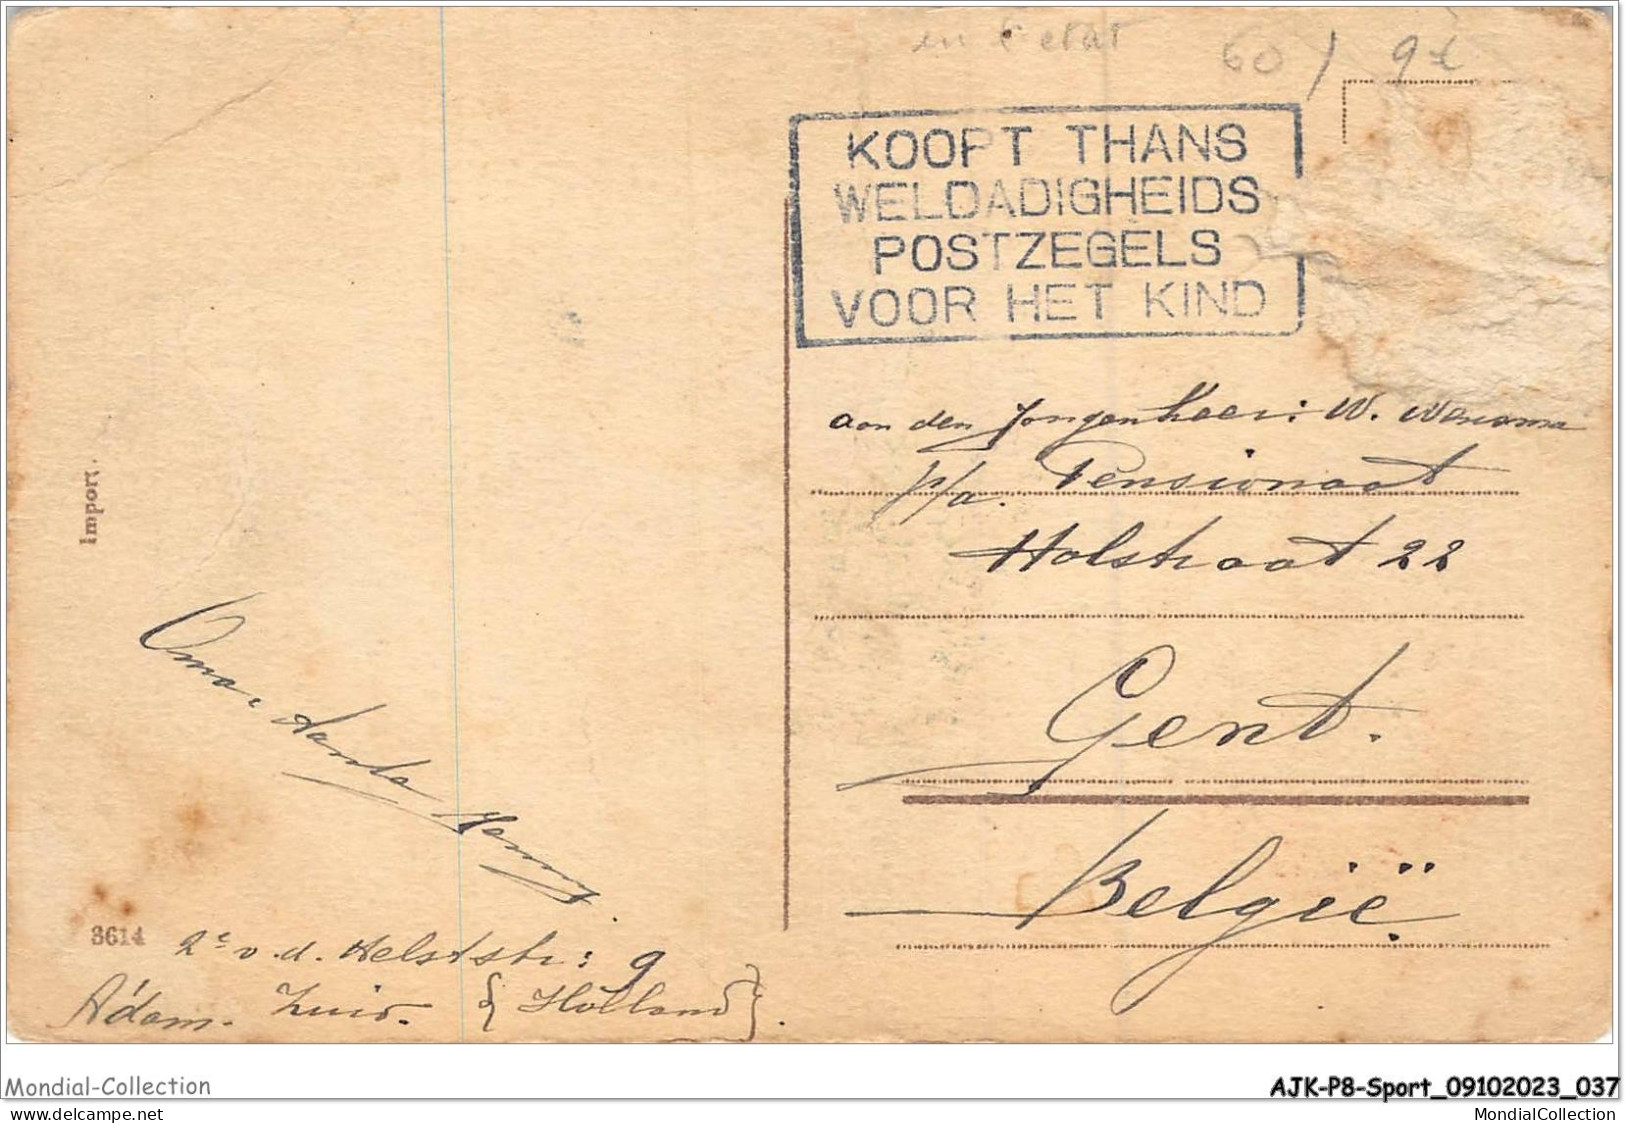 en l'etat
60 / 9€
KOOPT THANS
WELDADIGHEIDS
POSTZEGELS
VOOR HET KIND
aan den Jongenheer: W.
p/a. Pensionaat
Holstraat 22
Gent.
België.
Import.
Oma
Henny.
3614
2e v.d. Helststr: 9
A'dam. Zuid. {Holland}.
Mondial-Collection
AJK-P8-Sport_09102023_037
www.delcampe.net
MondialCollection